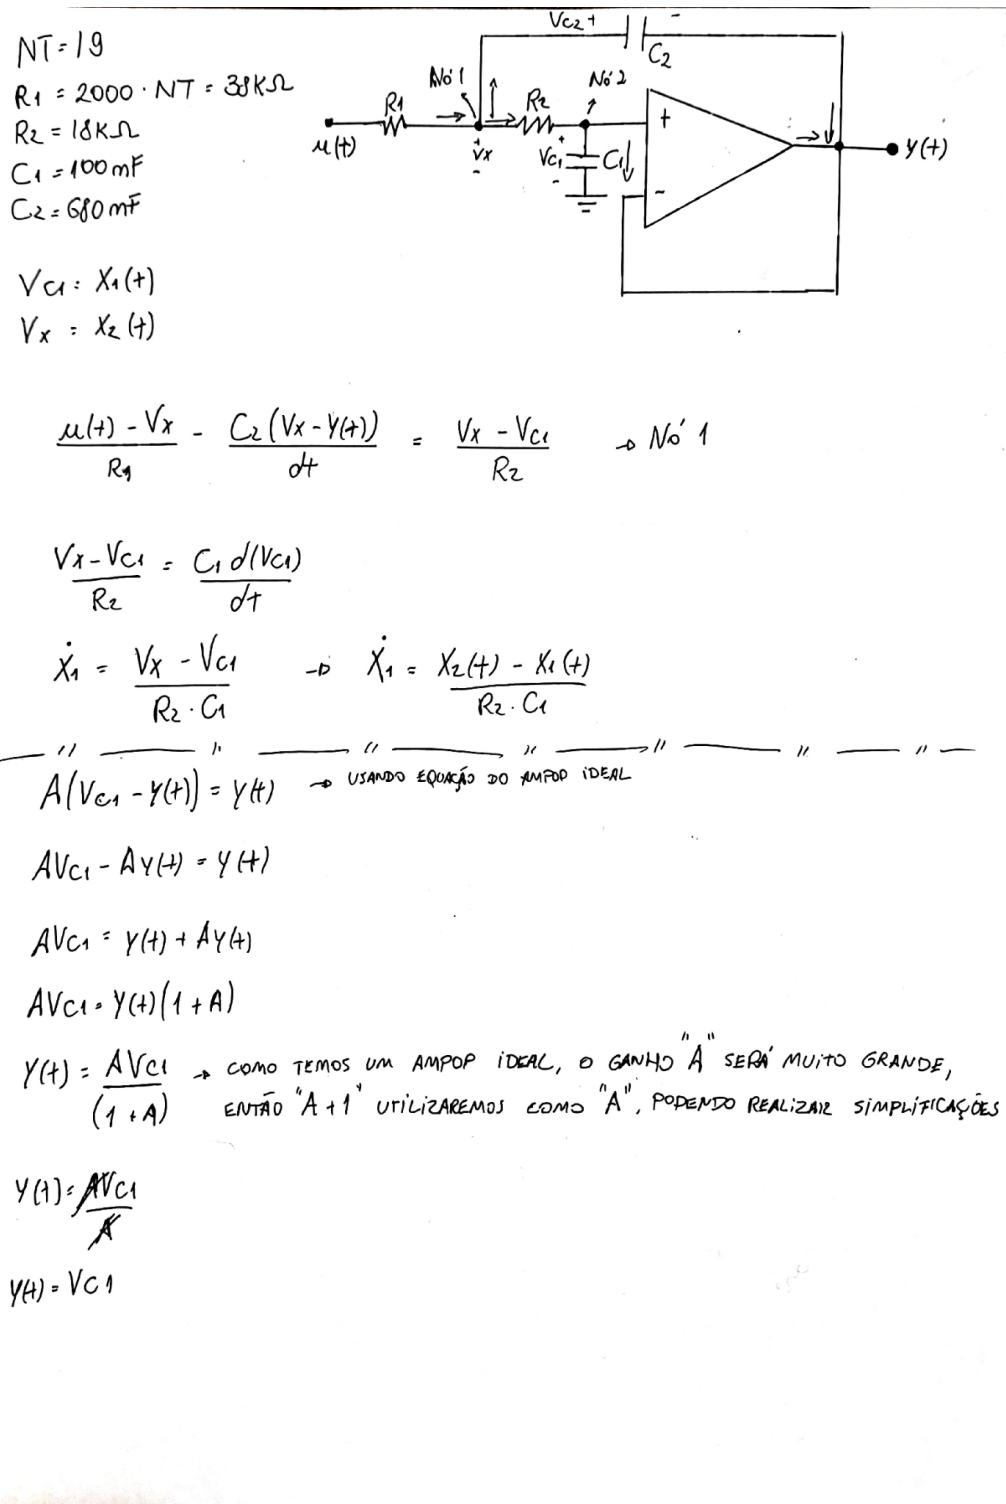 NT = 19
R1 = 2000 · NT = 38KΩ
R2 = 18KΩ
C1 = 100mF
C2 = 680mF
Vc2 + -
C2
Nó 1
Nó 2
R1
R2
u(t)
+
Vx
-
+
Vc1
-
C1
+
-
y(t)
Vc1 = X1(t)
Vx = X2(t)
(u(t) - Vx)/R1 - C2(Vx - Y(t))/dt = (Vx - Vc1)/R2 → Nó 1
(Vx - Vc1)/R2 = C1 d(Vc1)/dt
Ẋ1 = (Vx - Vc1)/(R2 · C1) → Ẋ1 = (X2(t) - X1(t))/(R2 · C1)
A(Vc1 - Y(t)) = Y(t) → USANDO EQUAÇÃO DO AMPOP IDEAL
AVc1 - AY(t) = Y(t)
AVc1 = Y(t) + AY(t)
AVc1 = Y(t)(1 + A)
Y(t) = AVc1/(1 + A) → COMO TEMOS UM AMPOP IDEAL, O GANHO "A" SERÁ MUITO GRANDE,
ENTÃO "A + 1" UTILIZAREMOS COMO "A", PODENDO REALIZAR SIMPLIFICAÇÕES
Y(t) = AVc1/A
Y(t) = VC1